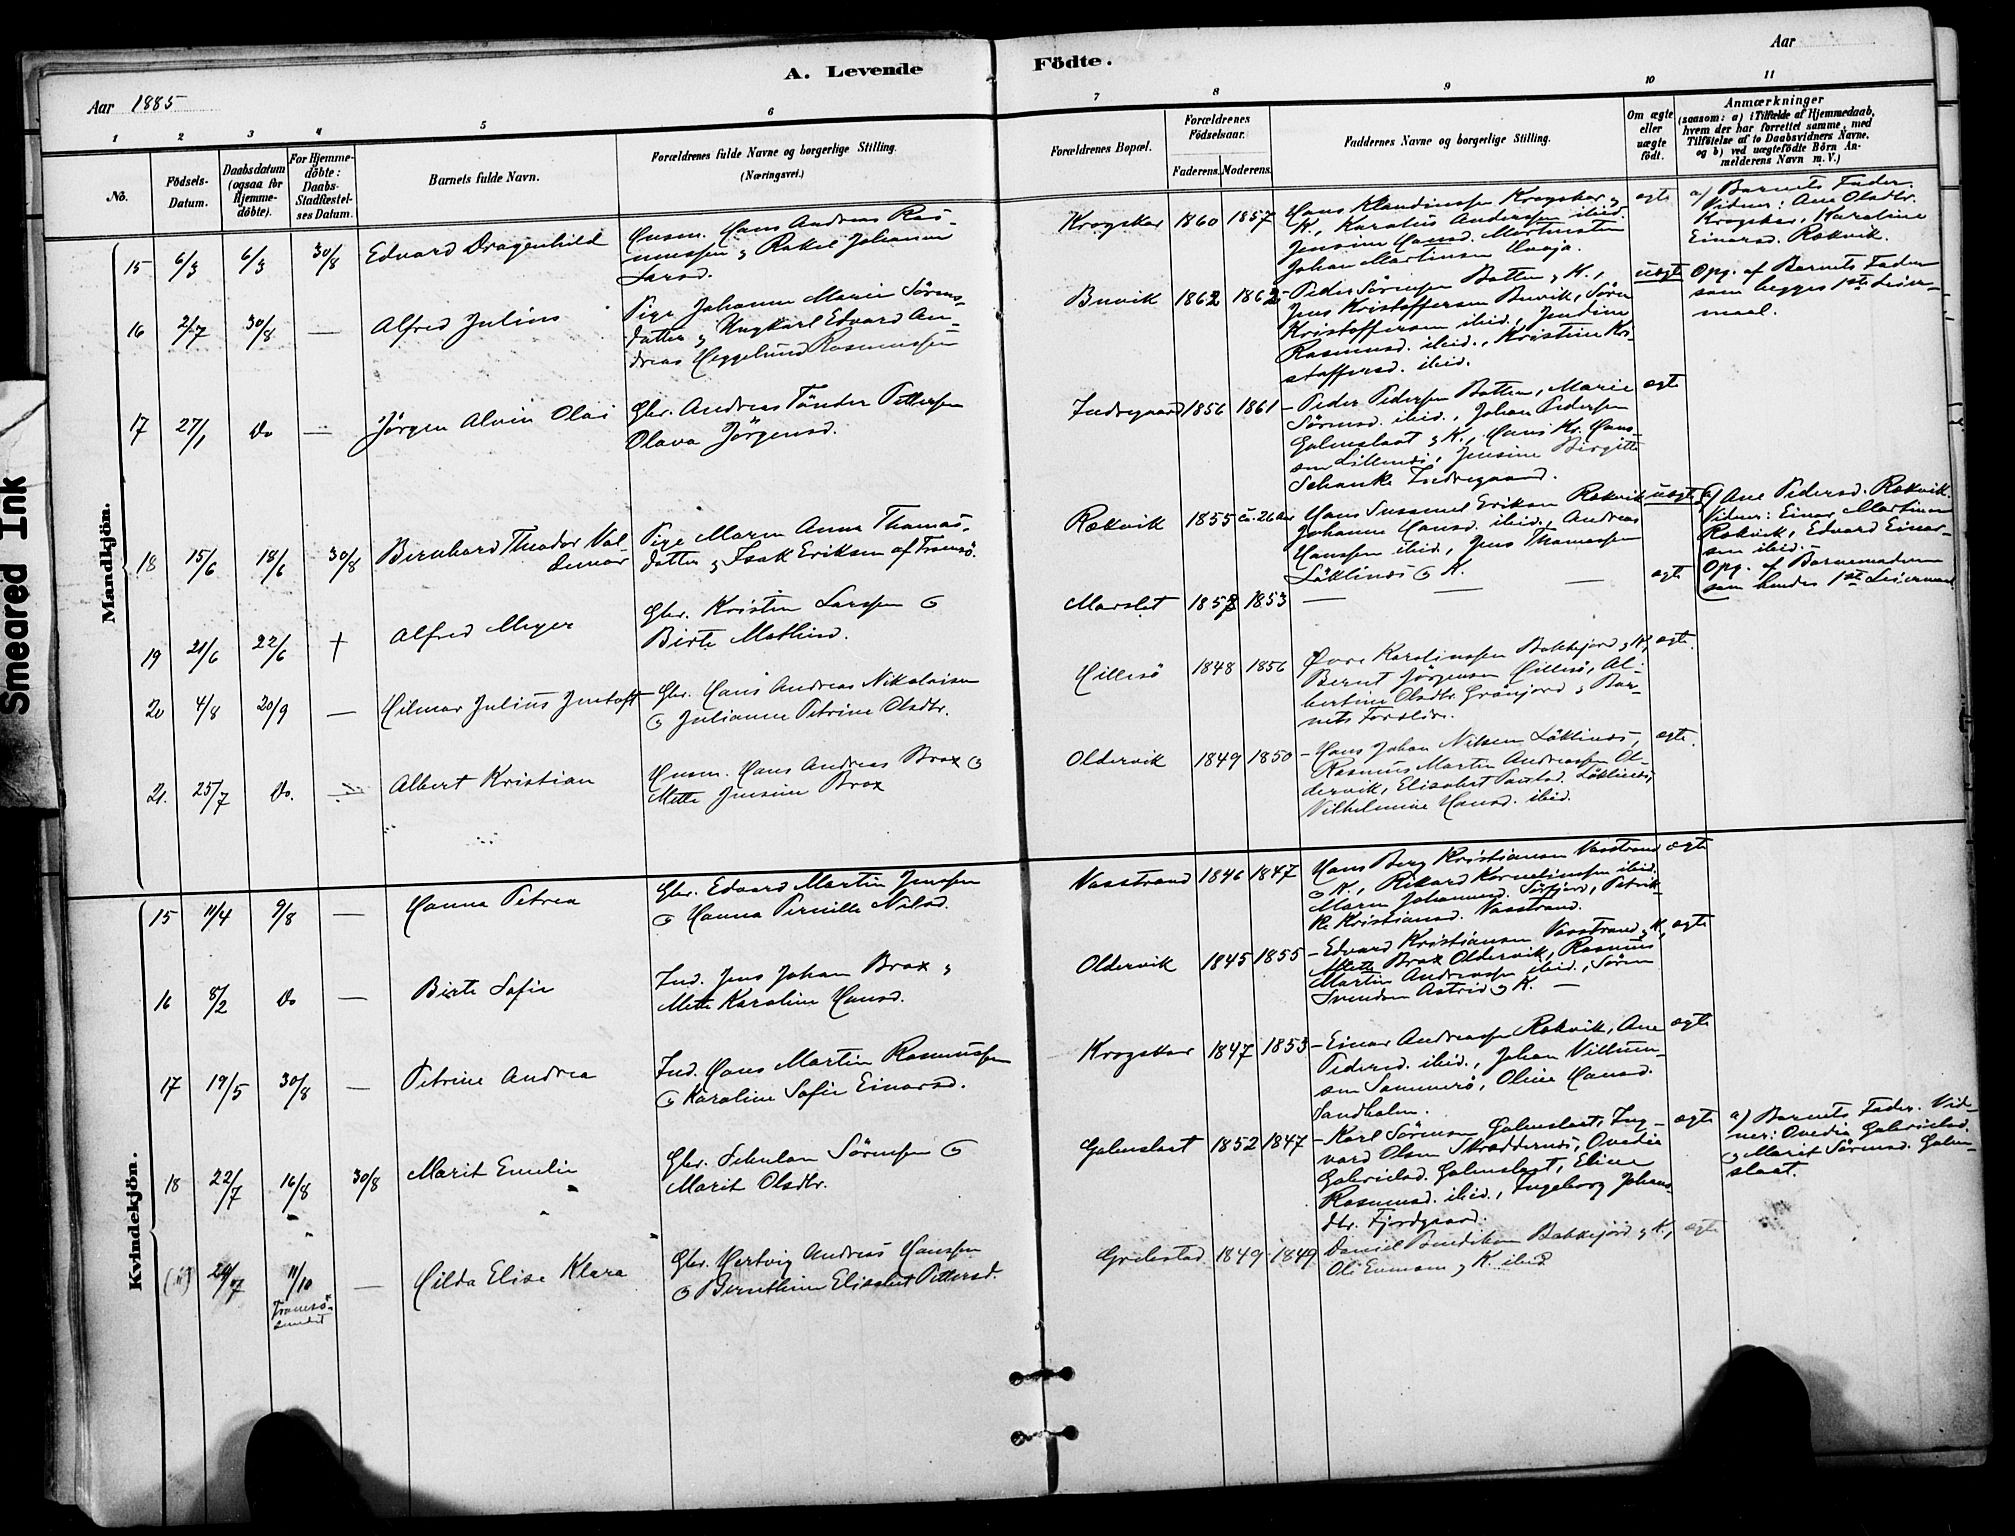 A. Levende
Födte.
Aar 1885
Aar
1 2 3 4 5 6 7 8 9 10 11
No.
Födsels-
Datum.
Daabsdatum
(ogsaa for
Hjemme-
döbte).
For Hjemme-
döbte:
Daabs-
Stadfæstel-
ses Datum.
Barnets fulde Navn.
Forældrenes fulde Navne og borgerlige Stilling.
(Næringsvei.)
Forældrenes Bopæl.
Forældrenes
Födselsaar.
Faderens. Moderens.
Faddernes Navne og borgerlige Stilling.
Om ægte
eller
uægte
födt.
Anmærkninger
(saasom: a) i Tilfælde af Hjemmedaab,
hvem der har forrettet samme, med
Tilföielse af to Daabsvidners Navne,
og b) ved uægtefödte Börn An-
melderens Navn m. V.)
Smeared Ink
Mandkjön.
15 6/3 6/3 30/8 Edvard Dragenhild
Husm. Hans Andreas Ras-
mussen & Rakel Johanna
Larsd.
Krogskar 1860 1857
Hans Klaudiussen Krogskar &
K., Karolus Andersen ibid.
Jensine Hansd.
Johan Martinsen
ægte
a) Barnets Fader.
Vidner: Ane Olsdtr.
Krogskar, Karoline
Einarsd. Rakvik.
16 2/7 30/8 — Alfred Julius
Pige Johanna Marie Sörens-
datter & Ungkarl Edvard An-
dreas Heggelund Rasmussen
Buvik 1862 1862
Peder Sörensen Botten & K.,
Jens Kristoffersen Buvik, Sören
Kristoffersen ibid., Jendine
Rasmusd. ibid., Kristine Kri-
stoffersd. ibid.
uægte
Opg. af Barnets Fader
som begges 1ste Leier-
maal.
17 27/1 Do — Jörgen Alvin Olai
Gbr. Andreas Tönder Pettersen
Olava Jörgensd.
Indregaard 1856 1861
Peder Pedersen Botten, Marie
Sörensd. ibid., Johan Pedersen
Galmslaat & K., Hans Kr. Han-
sen Lillenes, Jensine Birgitte
Schanke Indregaard.
ægte
18 15/6 18/6 30/8 Bernhard Theodor Val-
demar
Pige Maren Anna Thomas-
datter & Isak Eriksen af Tromsö.
Rækvik 1855 ca. 26 Aar
Hans Sussmel Eriksen Rakvik
Johanne Hansd. ibid., Andreas
Hanssen ibid., Jens Thomassen
Löklines & K.
uægte
a) Ane Pedersd. Rakvik.
Vidner: Einar Martinsen
Rakvik, Edvard Einar-
sen ibid.
Opg. af Barnemoderen
som hendes 1ste Leiermaal
19 21/6 22/6 † Alfred Meyer
Gbr. Kristen Larssen &
Birte Mathisd.
Marslet 1852 1853 — — — ægte
20 4/8 20/9 — Hilmar Julius Jentoft
Gbr. Hans Andreas Nikolaisen
& Julianne Petrine Olsdtr.
Hillesö 1848 1856
Øvre Karolinussen Bakkejord & K,
Bernt Jörgensen Hillesö, Al-
bertine Olsdtr. Grönjord & Bar-
nets Foreldre.
ægte
21. 25/7 Do. — Albert Kristian
Husm. Hans Andreas Brox &
Mette Jensine Brox
Oldervik 1849 1850
Hans Johan Nilsen Löklines,
Rasmus Martin Andreassen Ol-
dervik, Elisabet Löklines,
Vilhelmine Hansd. ibid.
ægte.
Kvindekjön.
15 11/4 9/8 — Hanna Petrea
Gbr. Edvard Martin Jenssen
& Hanna Pernille Nilsd.
Vasstrand 1846 1847
Hans Berg Kristiansen Vasstrand
& K., Rikard Kornelinssen ibid.,
Maren Johannesd. Sörfjord, Petrik-
ke Kristiansd. Vasstrand.
ægte
16 8/2 Do — Birte Sofie
Ind. Jens Johan Brox &
Mette Karoline Hansd.
Oldervik 1845 1855
Edvard Kristiansen Vasstrand & K,
Mette Brox Oldervik, Rasmus
Martin Andreassen ibid., Sören
Svendsen Astrid & K.
ægte
17 19/5 30/8 — Petrine Andrea
Ind. Hans Martin Rasmussen
& Karoline Sofie Einarsd.
Krogskar 1847 1853
Einar Andreassen Rakvik, Ane
Pedersd. ibid., Johan Villum-
sen Sommerö, Oline Hansd.
Sandholm.
ægte
18 22/7 16/8 30/8 Marit Emelie
Gbr. Sörensen &
Marit Olsdtr.
Galmslaat 1852 1847
Karl Sörensen Galmslaat, Ing-
vard Olsen Skreddernes, Ovedia
Gabrielsd. Galmslaat, Eline
Rasmusd. ibid., Ingeborg Johans-
dtr. Fjordgaard.
ægte
a) Barnets Fader. Vid-
ner: Ovedia Gabrielsd.
& Marit Sörensd. Galm-
slaat.
24/7 11/10 — Hilda Elise Klara
Tromsö-
sundet
Gbr. Hertvig Andreas Hanssen
& Bernthine Elisabet Pettersd.
Grebstad 1849 1849
Daniel Bendiksen Bakkejord & K,
Ole Evensen & K. ibid
ægte